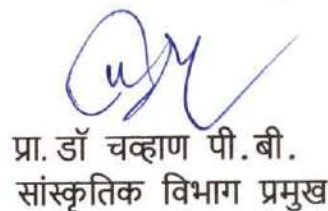 प्रा. डॉ चव्हाण पी.बी.
सांस्कृतिक विभाग प्रमुख